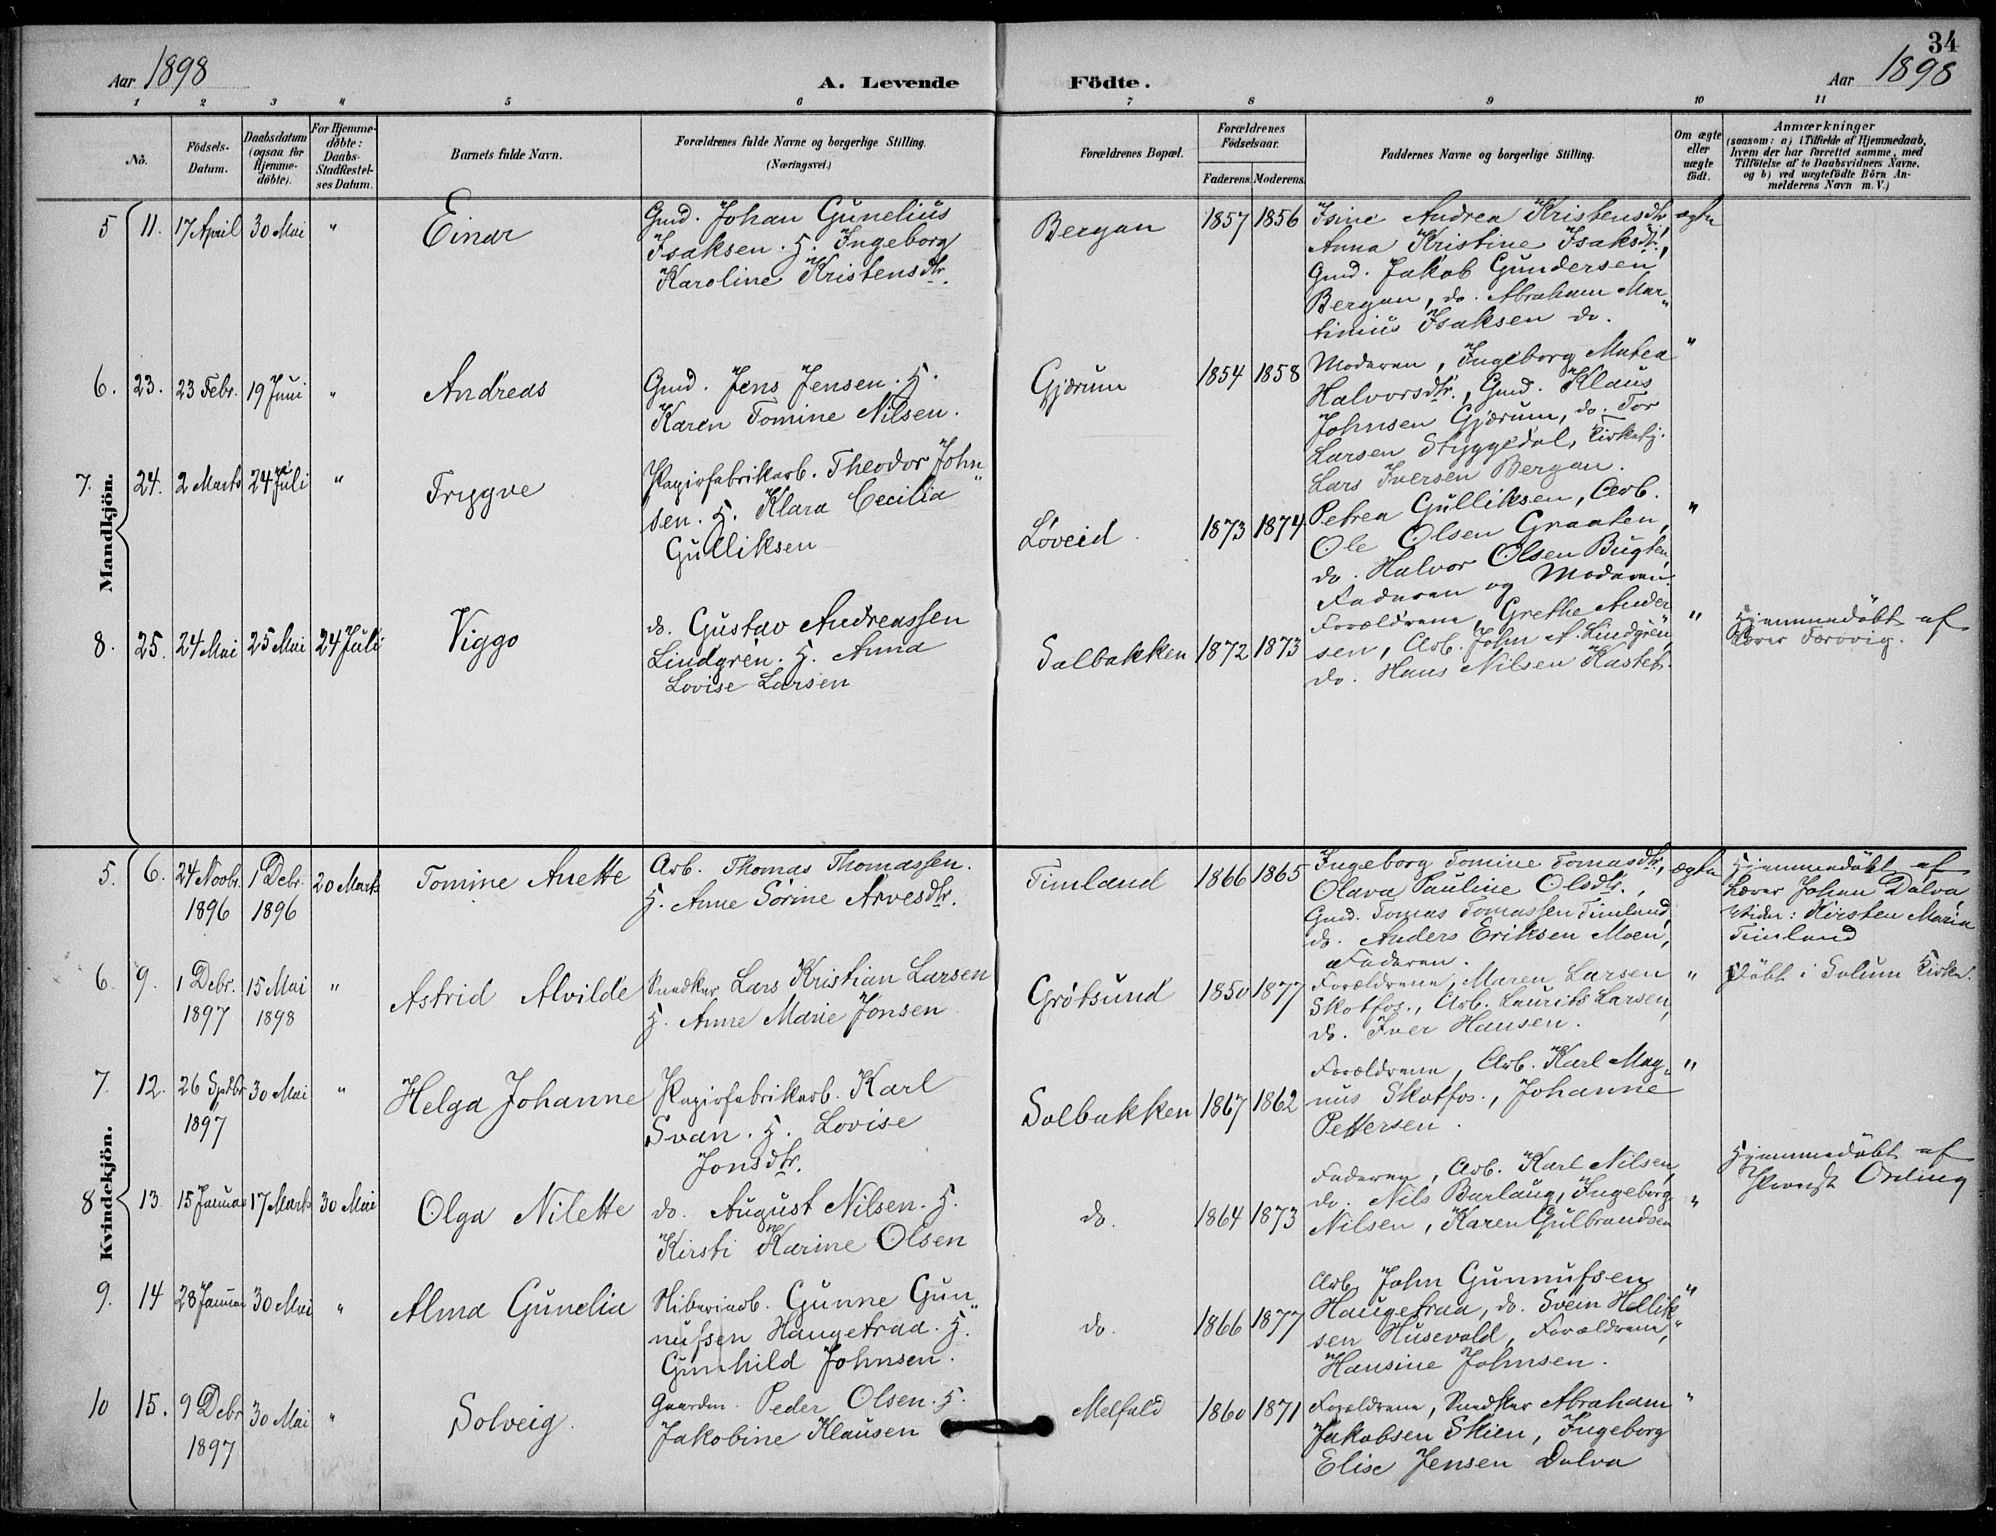 34
Aar 1898
A. Levende Födte.
Aar 1898
1 2 3 4 5 6 7 8 9 10 11
No.
Födsels-Datum.
Daabsdatum (ogsaa for Hjemme-döbte).
For Hjemme-döbte: Daabs-Stadfæstel-ses Datum.
Barnets fulde Navn.
Forældrenes fulde Navne og borgerlige Stilling. (Næringsvei.)
Forældrenes Bopæl.
Forældrenes Födselsaar.
Faderens. Moderens.
Faddernes Navne og borgerlige Stilling.
Om ægte eller uægte födt.
Anmærkninger
(saasom: a) i Tilfælde af Hjemmedaab,
hvem der har forrettet samme, med
Tilföielse af to Daabsvidners Navne.
og b) ved uægtefödte Börn An-
melderens Navn m. V.)
Mandkjön.
5 11. 17 April 30 Mai " Einar
Gmd. Johan Gunelius
Isaksen. H. Ingeborg
Karoline Kristensdtr.
Bergan 1857 1856
Isine Andrea Kristensdtr
Anna Kristine Isaksdtr,
Gmd. Jakob Gundersen
Bergan, do. Abraham Mar-
tinius Isaksen do.
ægte
6. 23. 23 Febr. 19 Juni " Andreas
Gmd. Jens Jensen. H.
Karen Tomine Nilsen.
Gjærum 1854 1858
Moderen, Ingeborg Matea
Halvorsdtr., Gmd. Klaus
Johnsen Gjærum, do. Tor
Larsen Styggedal, Kirketj.
Lars Iversen Bergan.
"
7. 24. 2 Marts 24 Juli " Trygve
Papirfabrikarb. Theodor John-
sen. H. Klara Cecilia
Gulliksen
Løveid. 1873 1874
Petrea Gulliksen, Arb.
Ole Olsen Graaten,
do. Halvor Olsen Bugten,
Faderen og Moderen.
"
8. 25. 24 Mai 25 Mai 24 Juli Viggo
do. Gustav Andreassen
Lindgren. H. Anna
Lovise Larsen
Solbakken 1872 1873
Forældrene, Grethe Ander-
sen, Arb. John A. Lindgren,
do. Hans Nilsen Kastet.
"
Hjemmedöbt af
Lærer Færvvig.
Kvindekjön.
5. 6. 24 Novbr. 1896 1 Debr. 1896 20 Marts Tomine Anette
Arb. Thomas Thomassen.
H. Anne Sörine Arvesdtr.
Timland 1866 1865
Ingeborg Tomine Tomasdtr.,
Olava Pauline Olsdtr.,
Gmd. Tomas Tomassen Timland,
do. Anders Eriksen Moen,
Faderen.
ægte
Hjemmedöbt af
Lærer Johan Dalva
Vidn: Kirsten Maria
Timland
6. 9. 1 Debr. 1897 15 Mai 1898 " Astrid Alvilde
Snedker Lars Kristian Larsen
H. Anne Marie Jonsen
Grøtsund 1850 1877
Forældrene, Maren Larsen
Skotfos., Arb. Laurits Larsen,
do. Iver Hansen.
"
Döbt i Solum Kirke.
7. 12. 26 Septbr 1897 30 Mai " Helga Johanne
Papirfabrikarb. Karl
Svan. H. Lovise
Jonsdtr.
Solbakken 1867 1862
Forældrene, Arb. Karl Mag-
nus Skotfos., Johanne
Pettersen.
"
8 13 15 Januar 17 Marts 30 Mai Olga Nilette
do. August Nilsen. H.
Kirsti Karine Olsen
do. 1864 1873
Faderen, Arb. Karl Nilsen,
do. Nils Barlaug, Ingeborg
Nilsen, Karen Gulbrandsen
"
Hjemmedöbt af
Provst Ording
9. 14 28 Januar 30 Mai " Alma Gunelia
Sliberiarb. Gunne Gun-
nufsen Haugetraa. H.
Gunhild Johnsen.
do. 1866 1877
Arb. John Gunnufsen
Haugetraa, do. Svein Hellik-
sen Husevold, Forældrene,
Hansine Johnsen.
"
10 15. 9 Debr 1897 30 Mai " Solveig.
Gaardm. Peder Olsen. H.
Jakobine Klausen
Melfald 1860 1871
Forældrene, Snedker Abraham
Jakobsen Skien, Ingeborg
Elise Jensen Dalva
"